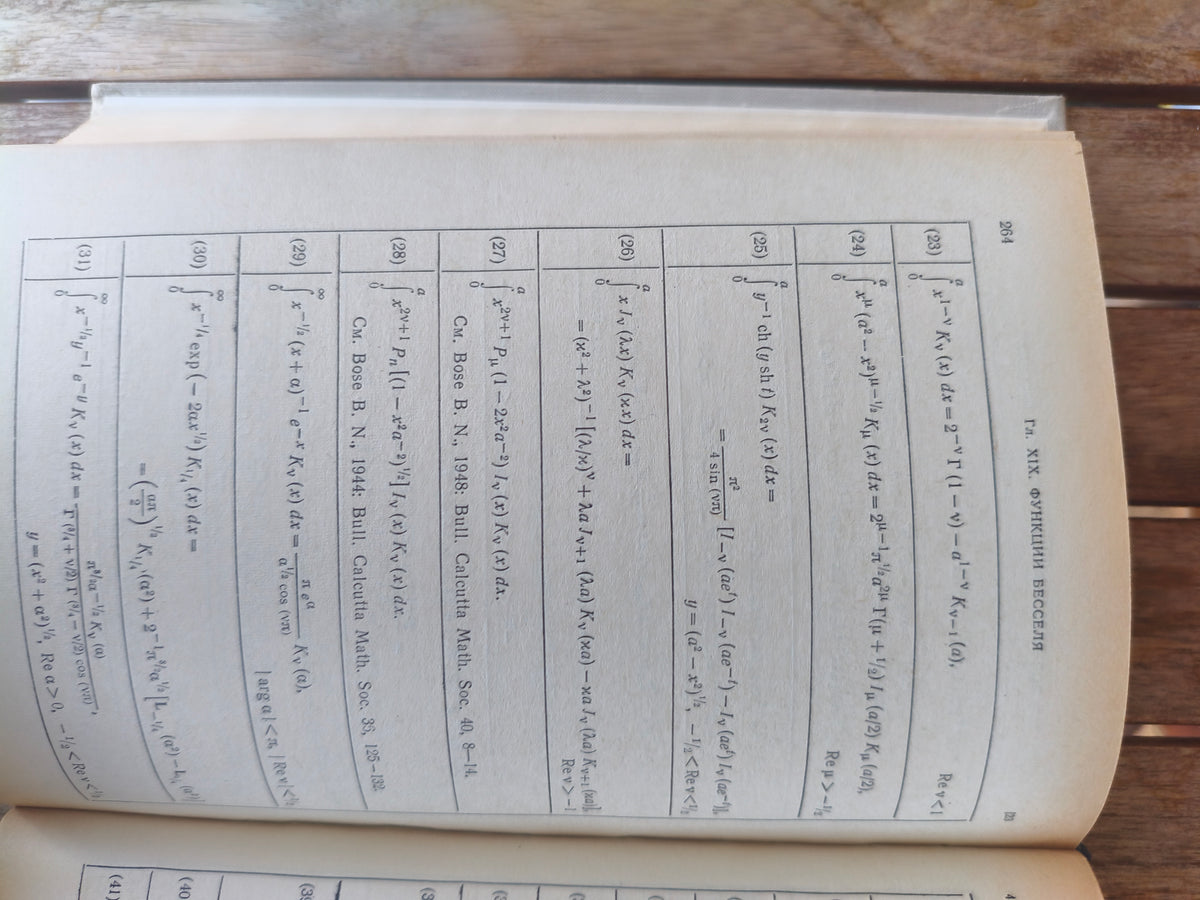 264
Гл. XIX. ФУНКЦИИ БЕССЕЛЯ
(23) ∫₀ᵃ x^{1−ν} K_ν (x) dx = 2^{−ν} Γ (1 − ν) − a^{1−ν} K_{ν−1} (a),
Re ν < 1
(24) ∫₀ᵃ x^μ (a² − x²)^{μ−1/2} K_μ (x) dx = 2^{μ−1} π^{1/2} a^{2μ} Γ (μ + 1/2) I_μ (a/2) K_μ (a/2),
Re μ > −1/2
(25) ∫₀ᵃ y^{−1} ch (y sh t) K_{2ν} (x) dx =
= π²/(4 sin (νπ)) [I_{−ν} (ae^t) I_{−ν} (ae^{−t}) − I_ν (ae^t) I_ν (ae^{−t})],
y = (a² − x²)^{1/2}, −1/2 < Re ν < 1/2
(26) ∫₀ᵃ x J_ν (λx) K_ν (ϰx) dx =
= (ϰ² + λ²)^{−1} [(λ/ϰ)^ν + λa J_{ν+1} (λa) K_ν (ϰa) − ϰa J_ν (λa) K_{ν+1} (ϰa)],
Re ν > −1
(27) ∫₀ᵃ x^{2ν+1} P_μ (1 − 2x²a^{−2}) I_ν (x) K_ν (x) dx.
См. Bose B. N., 1948: Bull. Calcutta Math. Soc. 40, 8—14.
(28) ∫₀ᵃ x^{2ν+1} P_n [(1 − x²a^{−2})^{1/2}] I_ν (x) K_ν (x) dx.
См. Bose B. N., 1944: Bull. Calcutta Math. Soc. 36, 125—132.
(29) ∫₀^∞ x^{−1/2} (x + a)^{−1} e^{−x} K_ν (x) dx = π e^a/(a^{1/2} cos (νπ)) K_ν (a),
| arg a | < π, | Re ν | < 1/2
(30) ∫₀^∞ x^{−1/4} exp (− 2ax^{1/2}) K_{1/4} (x) dx =
= (aπ/2)^{1/2} K_{1/4} (a²) + 2^{−1} π^{3/2} a^{1/2} [L_{−1/4} (a²) − L_{1/4} (a²)]
(31) ∫₀^∞ x^{−1/2} y^{−1} e^{−y} K_ν (x) dx = π^{3/2} a^{−1/2} K_ν (a)/(Γ (3/4 + ν/2) Γ (3/4 − ν/2) cos (νπ)),
y = (x² + a²)^{1/2}, Re a > 0, −1/2 < Re ν < 1/2
(40
(41)